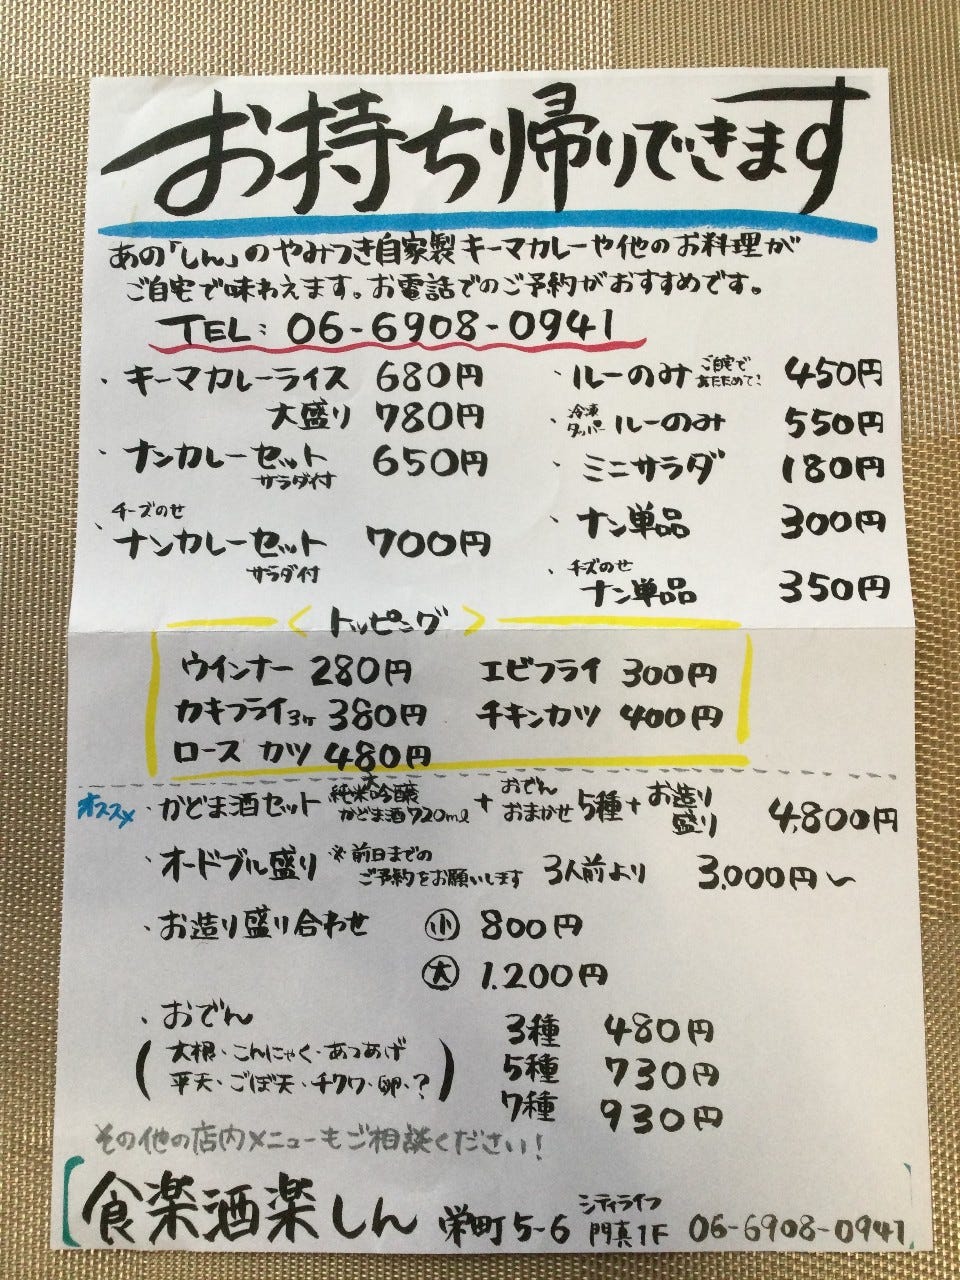 お持ち帰りできます
あの「しん」のやみつき自家製キーマカレーや他のお料理が
ご自宅で味わえます。お電話でのご予約がおすすめです。
TEL: 06-6908-0941
・キーマカレーライス 680円
大盛り 780円
・ナンカレーセット 650円
サラダ付
チーズのせ
・ナンカレーセット 700円
サラダ付
・ルーのみ ご自宅であたためて! 450円
・冷凍タッパー ルーのみ 550円
・ミニサラダ 180円
・ナン単品 300円
・チーズのせ
ナン単品 350円
<トッピング>
ウインナー 280円 エビフライ 300円
カキフライ3ヶ 380円 チキンカツ 400円
ロースカツ 480円
オススメ ・かどま酒セット 純米大吟醸 かどま酒720ml + おでんおまかせ5種 + お造り盛り 4,800円
・オードブル盛り ※前日までのご予約をお願いします 3人前より 3,000円~
・お造り盛り合わせ 小 800円
大 1,200円
・おでん 3種 480円
(大根・こんにゃく・あつあげ 5種 730円
平天・ごぼ天・チクワ・卵・?) 7種 930円
その他の店内メニューもご相談ください!
食楽酒楽しん 栄町5-6 シティライフ門真1F 06-6908-0941